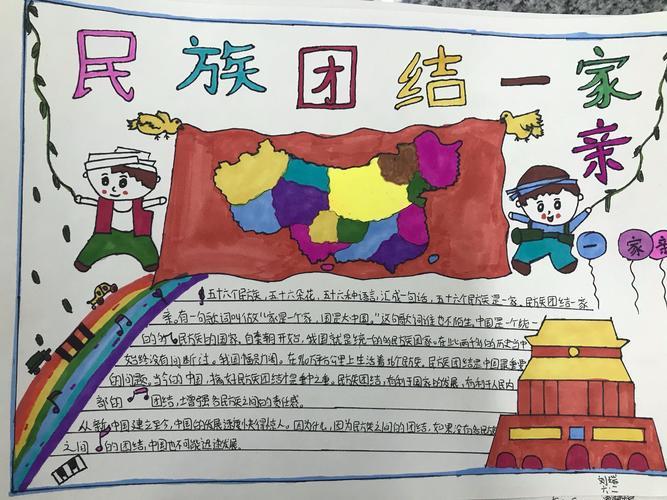 民族团结一家亲
一家亲
五十六个民族，五十六朵花，五十六种语言，汇成一句话，五十六个民族是一家。民族团结一家
亲。有一句歌词叫做“家是一个家，国是大中国。”这句歌词谁也不陌生。中国是一个统一
的多民族的国家，自秦朝开始，我国就是统一的多民族国家。在此两千多的历史当中
始终没有间断过。我国幅员辽阔，在960万平方公里上生活着56个民族。民族团结是中国最重要
的问题，当今的中国，搞好民族团结才是重中之重。民族团结，有利于国家的发展，有利于人民内
部的团结，土增强各民族之间的责任感。
从新中国建立至今，中国的发展速度快得惊人。因为什么，因为民族之间的团结，如果没有各民族
之间的团结，中国也不能迅速发展。
六二